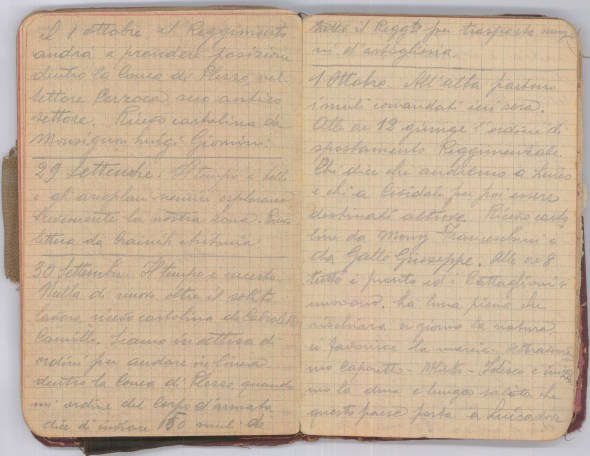 Il 1 ottobre il Reggimento
andrà a prendere posizione
dentro la Conca di Plezzo nel
settore Cezsoca, suo antico
settore. Ricevo cartolina da
Monsignor Luigi
29 Settembre. Il tempo è bello
e gli areoplani nemici esplorano
la nostra zona.
lettera da Antonia
30 Settembre. Il tempo è incerto
Nulla di nuovo oltre il solito
lavoro, ricevo cartolina da
Camillo. Siamo in attesa di
ordini per andare in linea
dentro la Conca di Plezzo quando
un ordine del Corpo d'armata
dice di inviare 150 muli di
tutto il Reggto per trasporto
ni d'artiglieria.
1 Ottobre. All'alba partono
i muli comandati ieri sera.
Alle ore 12 giunge l'ordine di
spostamento Reggimentale.
Chi dice che andremo a Luico
e chi a Cividale per poi essere
destinati altrove. Ricevo carto
line da Mons Franceschini e
da Gallo Giuseppe. Alle ore 8
tutto è pronto ed i Battaglioni si
muovono. La luna piena che
rischiara a giorno la natura
ci favorisce la marcia. Attraversia
mo Caporetto - - Idresco e
mo la dura e lunga salita che
questo paese porta a Luico